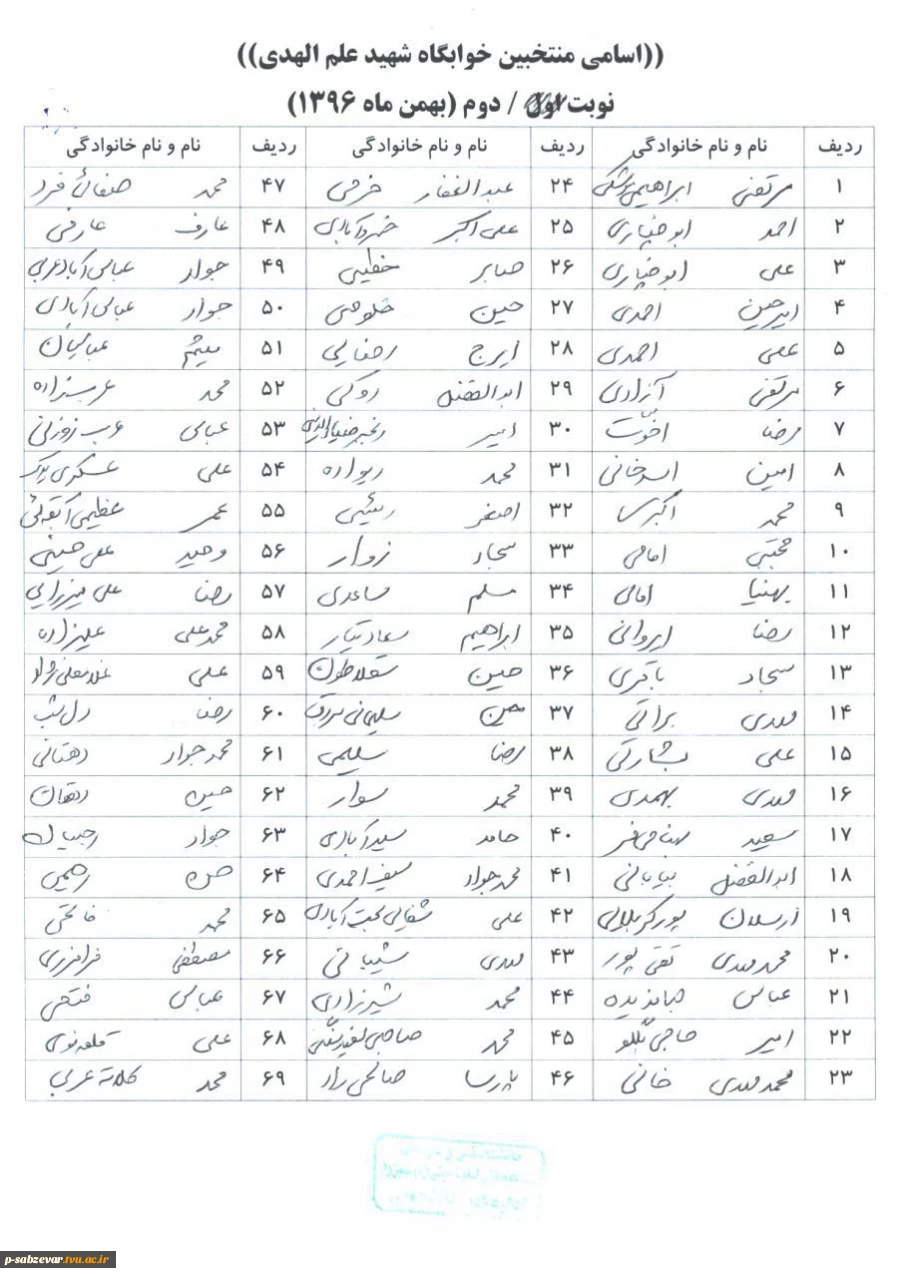 ((اسامی منتخبین خوابگاه شهید علم الهدی))
نوبت اول / دوم (بهمن ماه ۱۳۹۶)
ردیف نام و نام خانوادگی ردیف نام و نام خانوادگی ردیف نام و نام خانوادگی
۱ مرتضی ۲۴ عبدالغفار خرمی ۴۷ محمد صنعائی فرد
۲ احمد ابوخپاری ۲۵ علی اکبر خسروآبادی ۴۸ عارف عارفی
۳ علی ابوخپاری ۲۶ صابر خطیبی ۴۹ جواد عباس آباد عربی
۴ امیرحسین احمدی ۲۷ حسین خلوصی ۵۰ جواد عباس آبادی
۵ علی احمدی ۲۸ ایرج رضایی ۵۱ میثم عباسیان
۶ مرتضی آزادی ۲۹ ابوالفضل روکی ۵۲ محمد عربزاده
۷ رضا اخوت ۳۰ امیر ۵۳ عباس عرب زوزنی
۸ امین اسدخانی ۳۱ محمد ریواده ۵۴ علی عسکری
۹ محمد اکبری ۳۲ اصغر رئیسی ۵۵ عمر عظیمی
۱۰ مجتبی امامی ۳۳ سجاد زوار ۵۶ وحید علی حسینی
۱۱ پهنیا امامی ۳۴ مسلم ساعدی ۵۷ رضا علی میرزایی
۱۲ رضا ایروانی ۳۵ ابراهیم سعادتیار ۵۸ محمدعلی علیزاده
۱۳ سجاد باقری ۳۶ حسین ۵۹ علی
۱۴ مهدی براتی ۳۷ حسن سلیمانی ۶۰ رضا دل شب
۱۵ علی بشارتی ۳۸ رضا سلیمی ۶۱ محمدجواد دهقانی
۱۶ مهدی بهمدی ۳۹ محمد سوار ۶۲ حسین دهقان
۱۷ سعید ۴۰ حامد سیدآبادی ۶۳ جواد رجبیان
۱۸ ابوالفضل بیابانی ۴۱ محمدجواد سیف احمدی ۶۴ حسن رحیمی
۱۹ ارسلان پورکربلائی ۴۲ علی شفایی محبت آبادی ۶۵ محمد فاتحی
۲۰ محمدمهدی تقی پور ۴۳ مهدی شیبانی ۶۶ مصطفی فرامرزی
۲۱ عباس جهاندیده ۴۴ محمد شیرزادی ۶۷ عباس فتحی
۲۲ امیر حاجی بگلو ۴۵ محمد صاحبی ۶۸ علی قلعه نوی
۲۳ محمدمهدی خانی ۴۶ پارسا صالحی راد ۶۹ محمد کلاته عربی
p-sabzevar.tvu.ac.ir